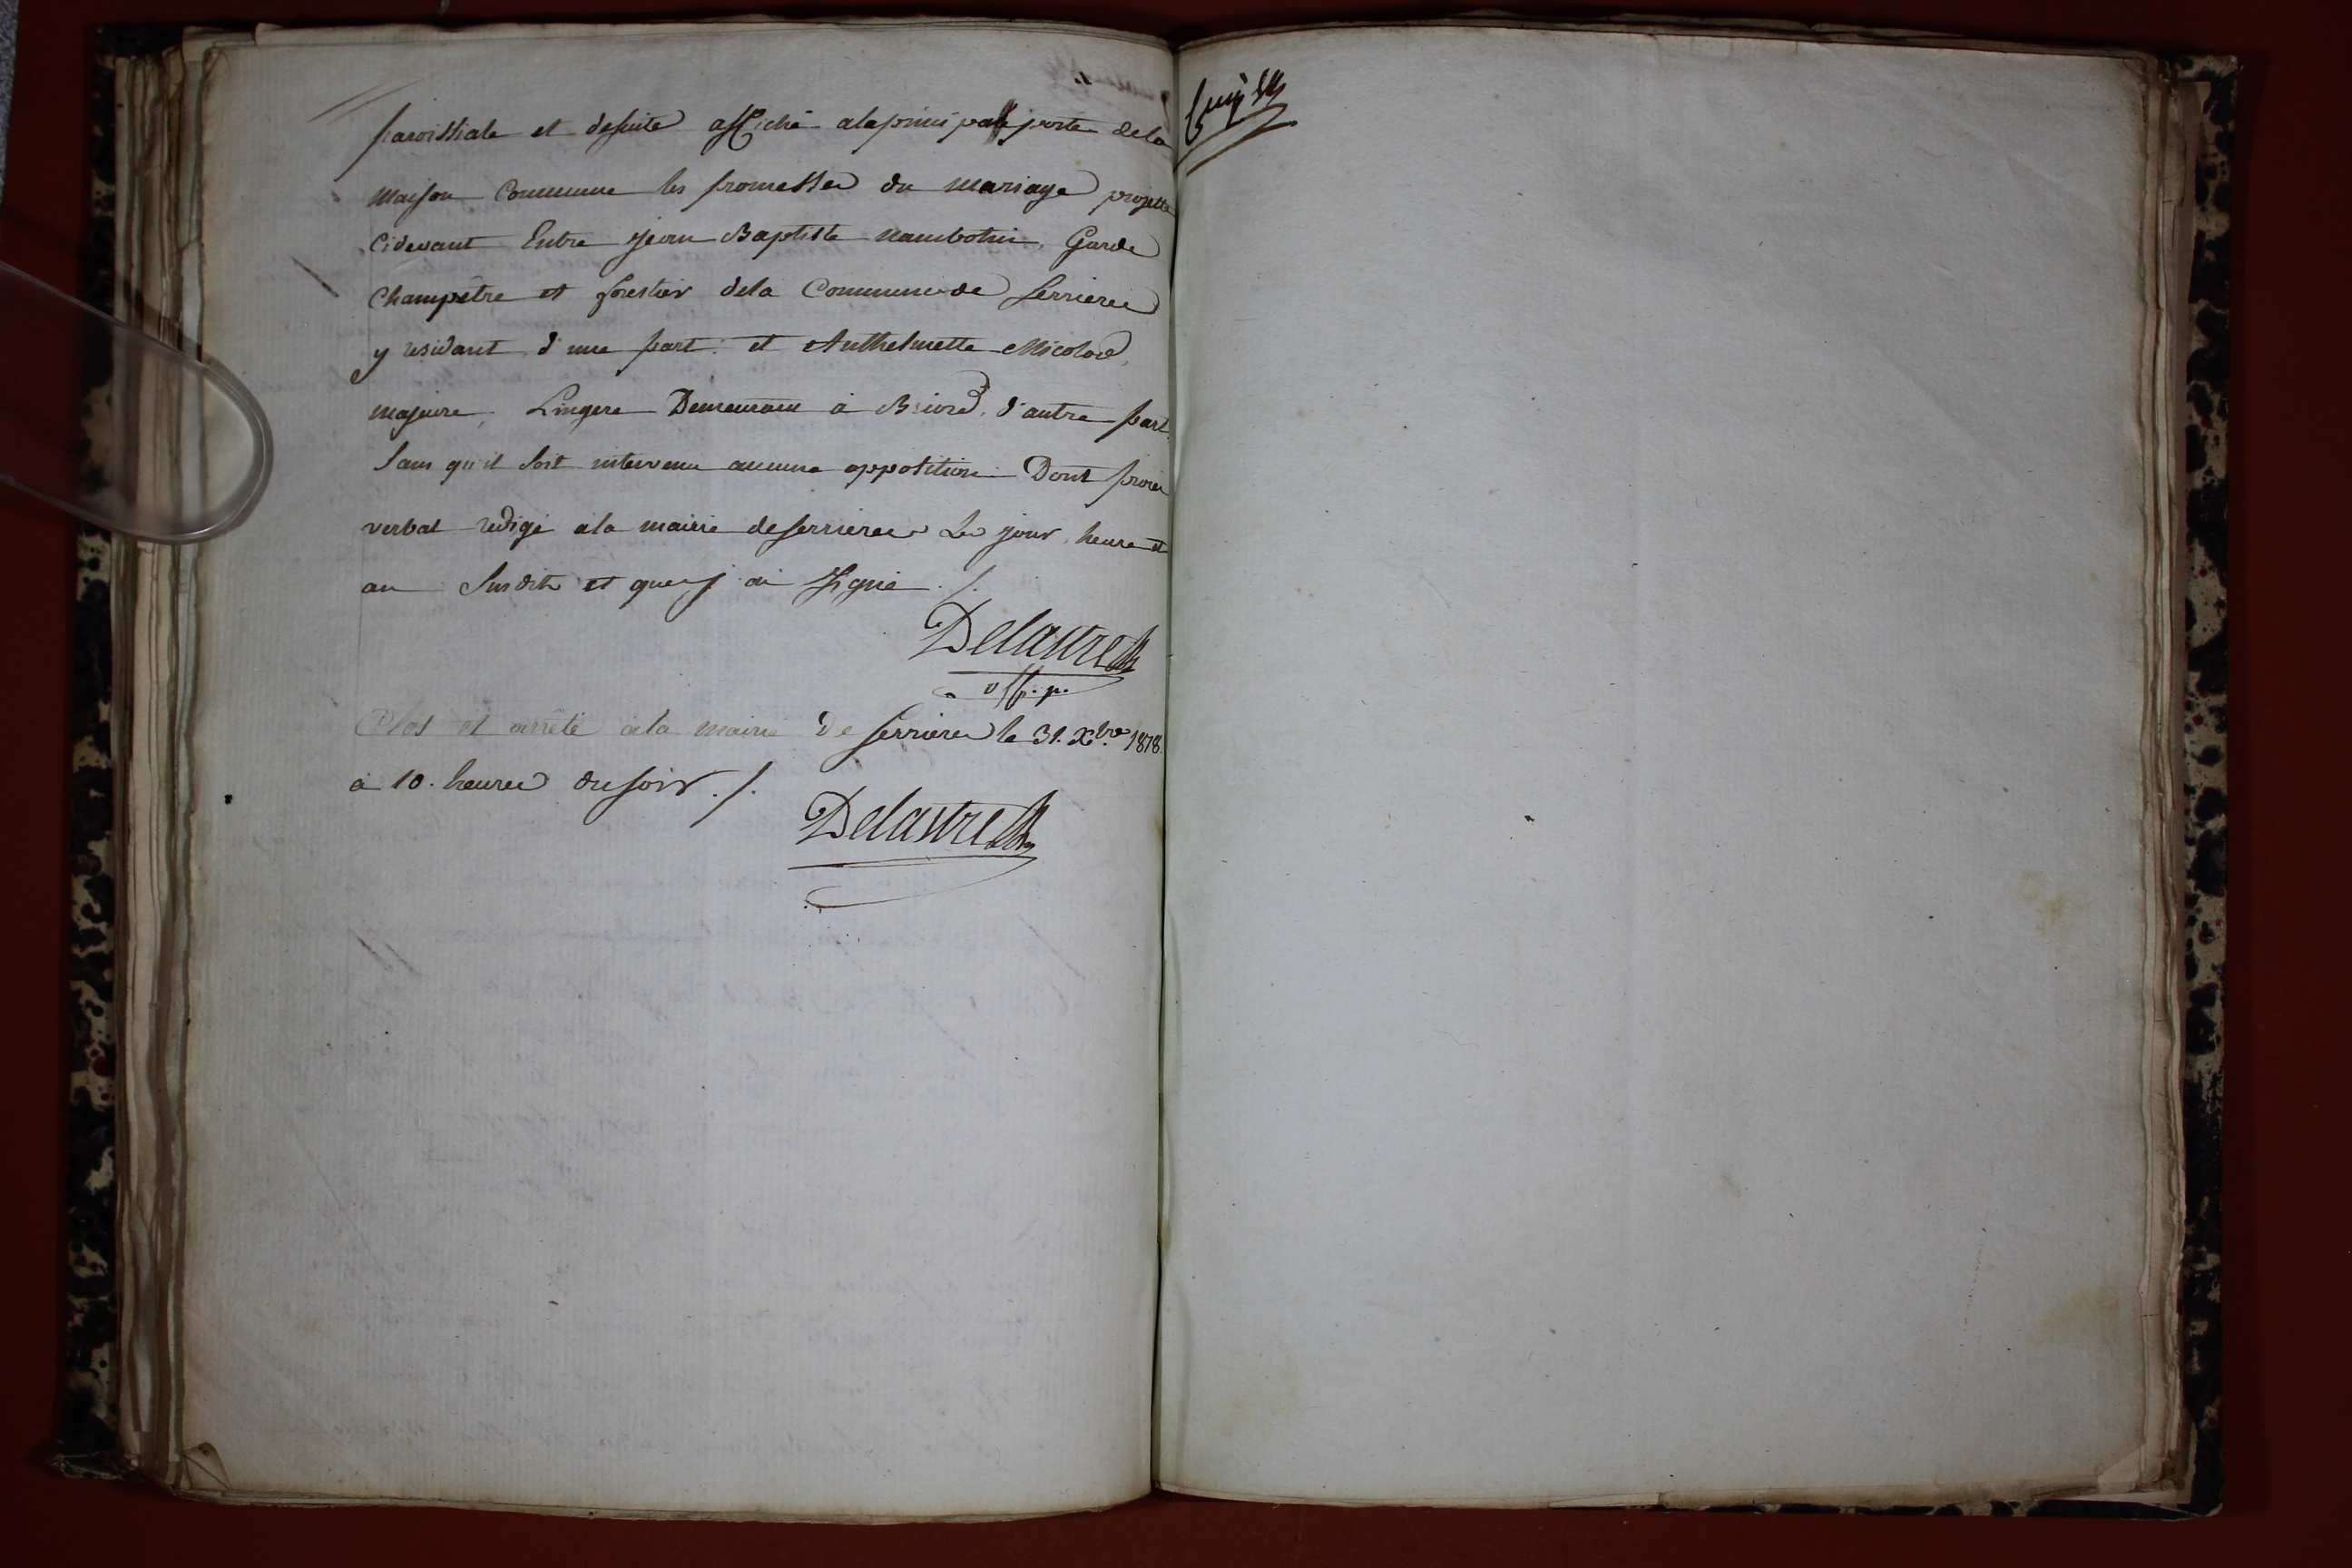 paroissiale et desuite affiché alaprincipale porte dela
maison Commune les promesses du mariage projetté
Cidevant Entre Jean Baptiste nambotin, Garde
Champêtre et forestier dela Commune de Serrieres
y residant d'une part. et Anthelmette Micolod,
majeure, Lingere Demeurant à Briord, d'autre part
Sans qu'il soit intervenu aucune opposition. Dont procès
verbal redigé ala mairie de serrieres Les jour, heure et
an Susdits et que j'ai signé ./.
Delastre
off. p.
Clos et arrêté ala mairie de serrieres le 31. Xbre. 1818.
à 10. heures dusoir ./.
Delastre